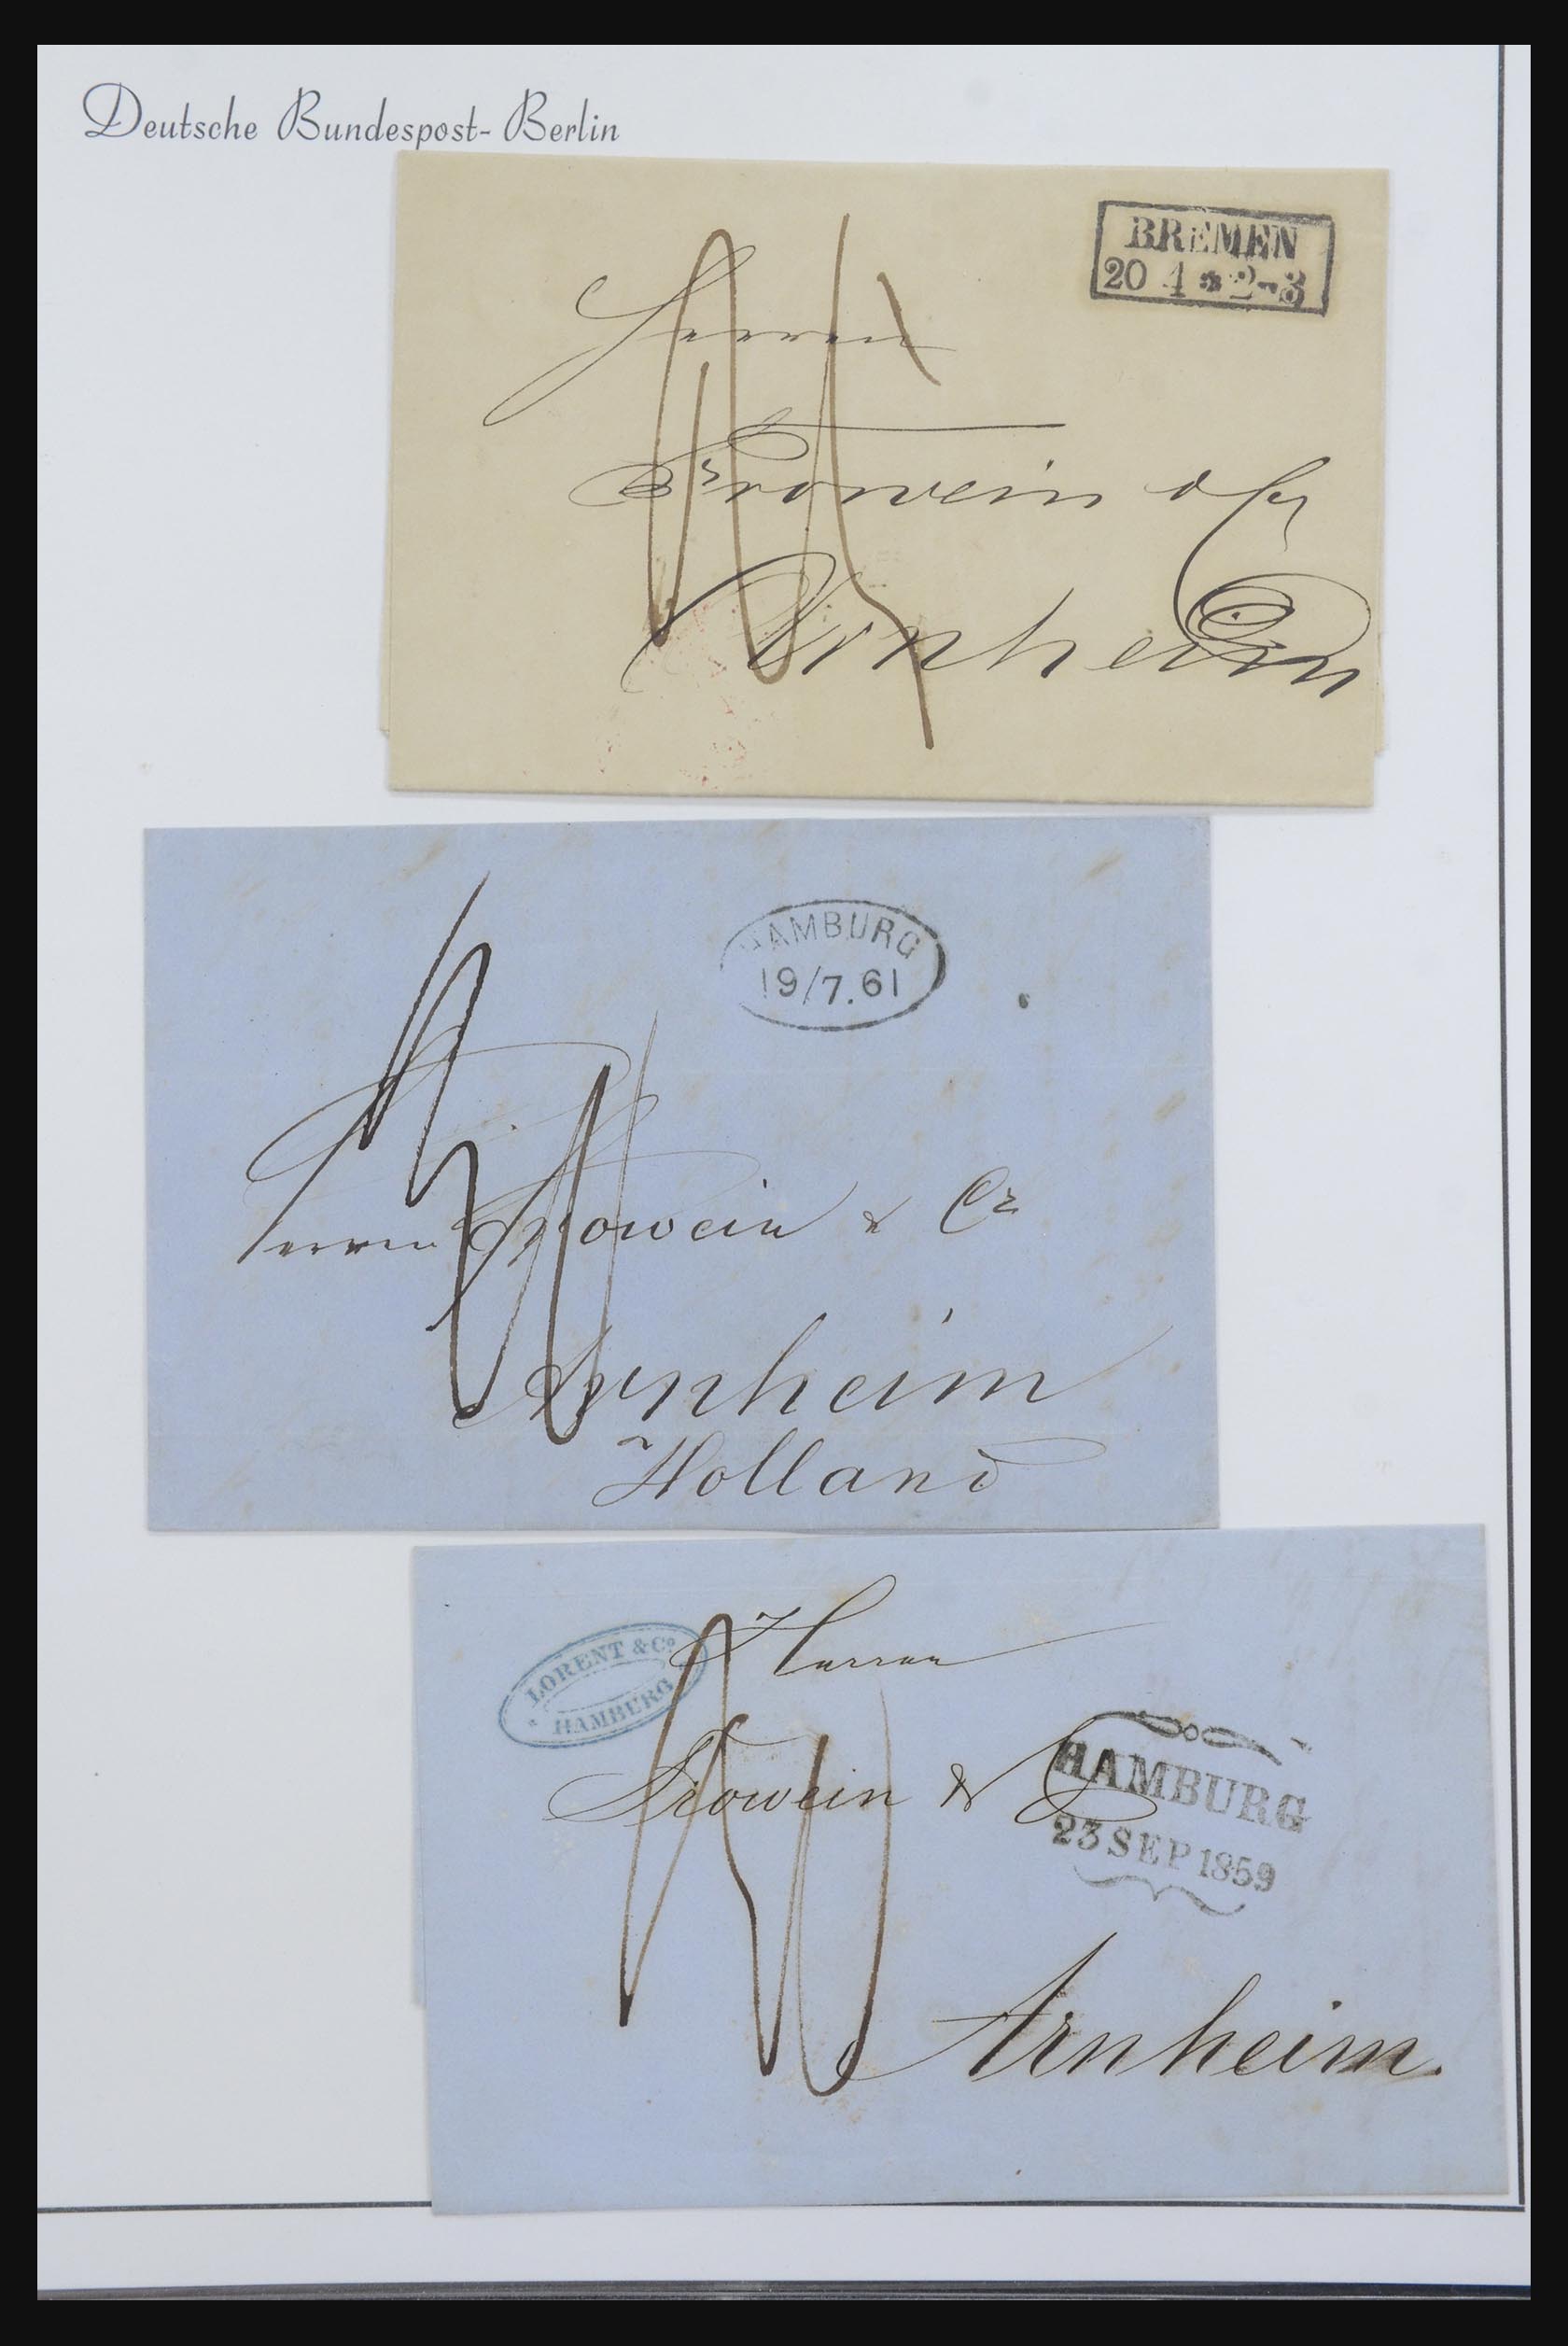 Deutsche Bundespost-Berlin
BREMEN
20 4 * 2-3
Herren
Frowein & Co
Arnheim
HAMBURG
19/7.61
Herren Frowein & Co
Arnheim
Holland
LORENT & Co
HAMBURG
Herren
Frowein & Co
HAMBURG
23 SEP 1859
Arnheim.